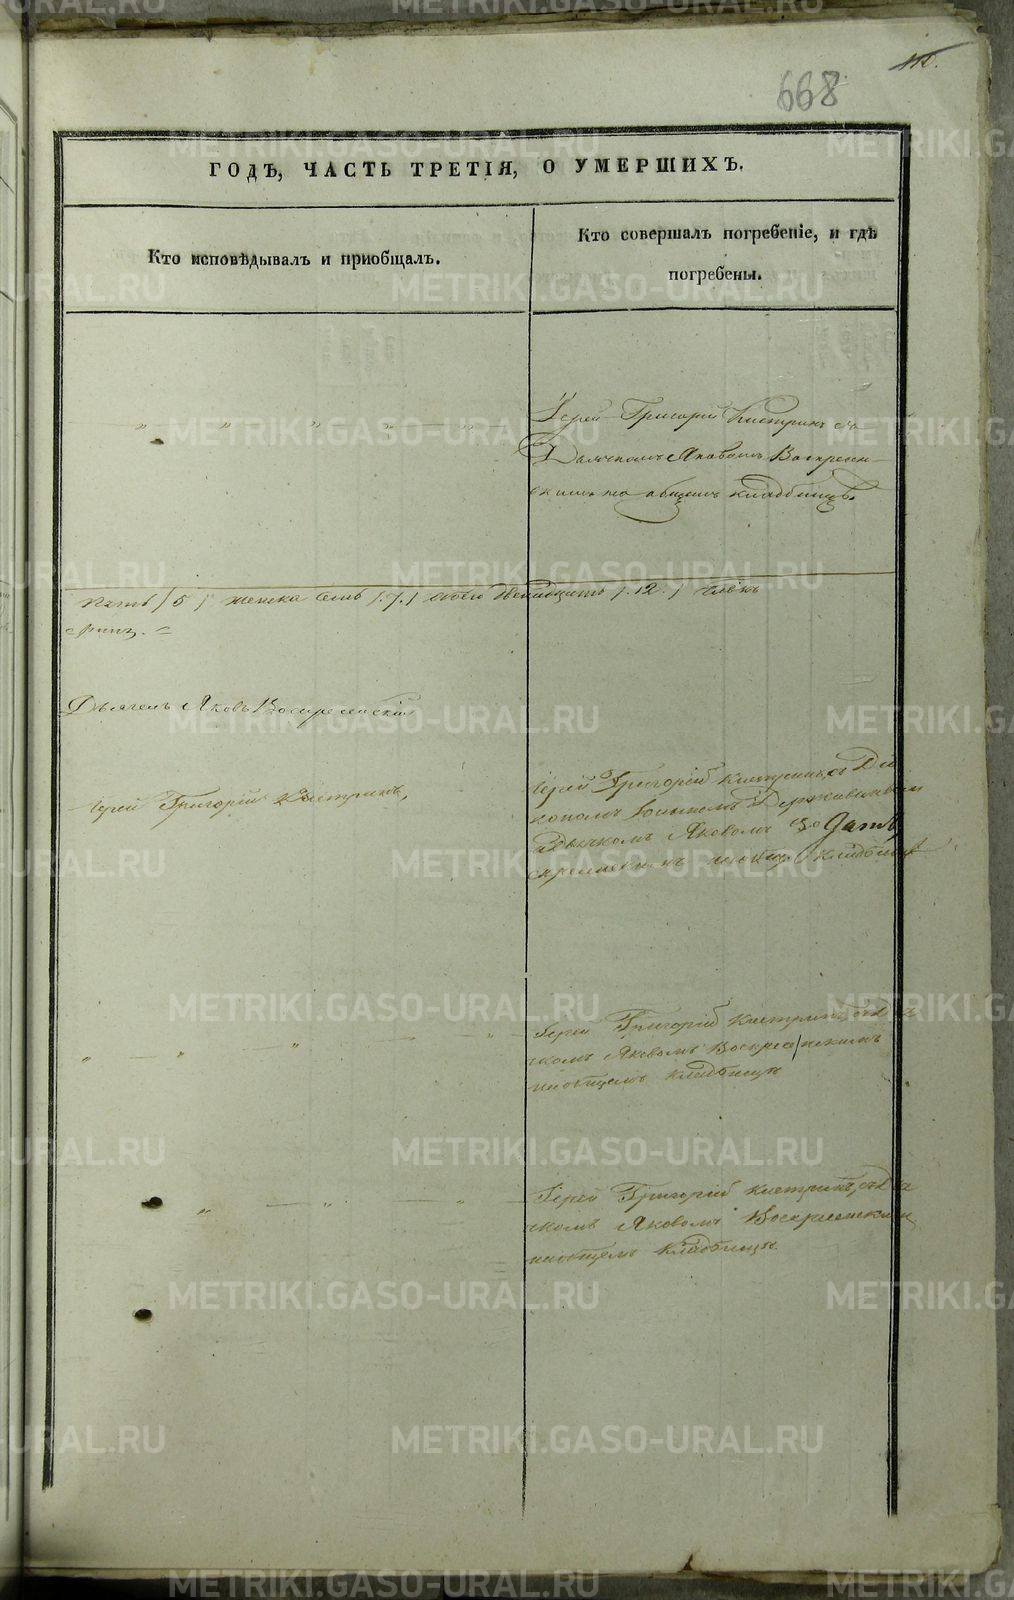 110.
668
ГОДЪ, ЧАСТЬ ТРЕТІЯ, О УМЕРШИХЪ.
Кто исповѣдывалъ и пріобщалъ.
Кто совершалъ погребеніе, и гдѣ
погребены.
Іерей Григорій Кистринъ съ
Дьячкомъ Яковомъ Воскресен-
скимъ на общемъ кладбищѣ.
пять /5/ женска семь /.7./ обоего двенадцать /.12./
Дьячекъ Яковъ Воскресенскій
Іерей Григорій Кистринъ,
Іерей Григорій Кистринъ, съ Діа
кономъ Державинымъ
и Дьячкомъ Яковомъ Во
скресенскимъ кладбищѣ
Іерей Григорій Кистринъ, съ Дья
чкомъ Яковомъ Воскресенскимъ
на общемъ кладбищѣ
Іерей Григорій Кистринъ, съ Дья
чкомъ Яковомъ Воскресенским
на общемъ кладбищѣ.
METRIKI.GASO-URAL.RU